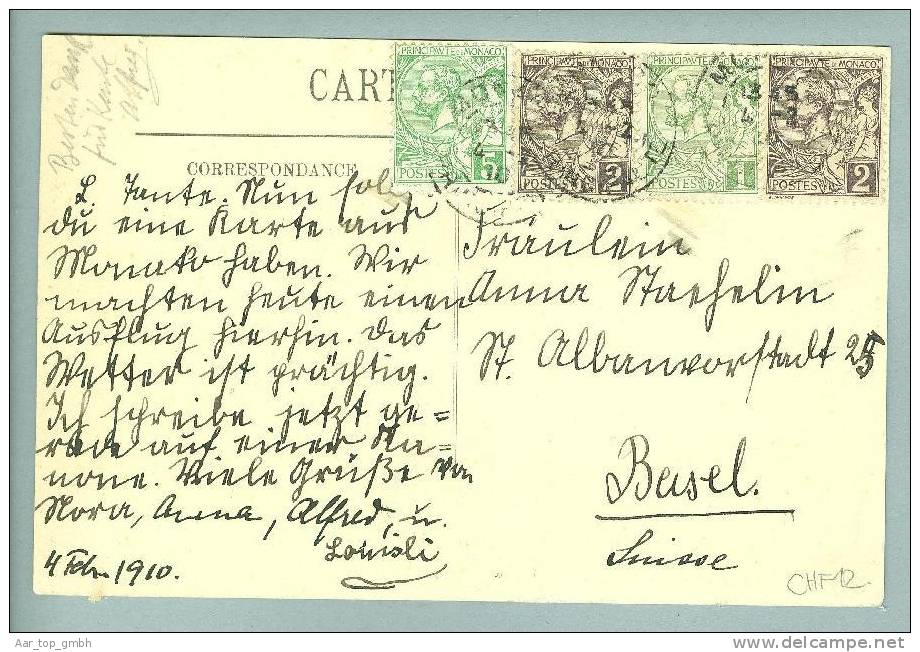 Besten Dank
für Karte
Alfred.
CART
CORRESPONDANCE
PRINCIPAVTE DE MONACO
POSTES 1
PRINCIPAVTE DE MONACO
POSTES 2
PRINCIPAVTE DE MONACO
POSTES 1
PRINCIPAVTE DE MONACO
POSTES 2
L. Tante. Nun sollst
du eine Karte aus
Monako haben. Wir
machten heute einen
Ausflug hierhin. Das
Wetter ist prächtig.
Ich schreibe jetzt ge=
rade auf einer Ka=
none. Viele Grüße von
Nora, Anna, Alfred, u.
Louisli
4 Feb. 1910.
Fräulein
Anna Staehelin
St. Albanvorstadt 25
Basel.
Suisse
CHF 12.
Aar_top_gmbh
www.delcampe.net